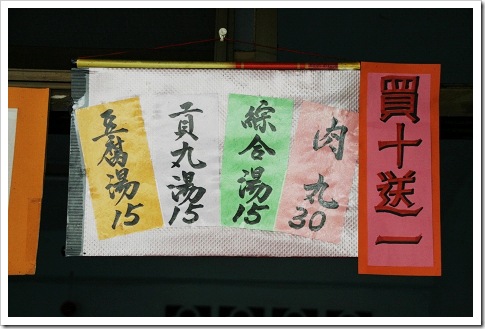 買十送一
肉丸
30
綜合湯
15
貢丸湯
15
豆腐湯
15